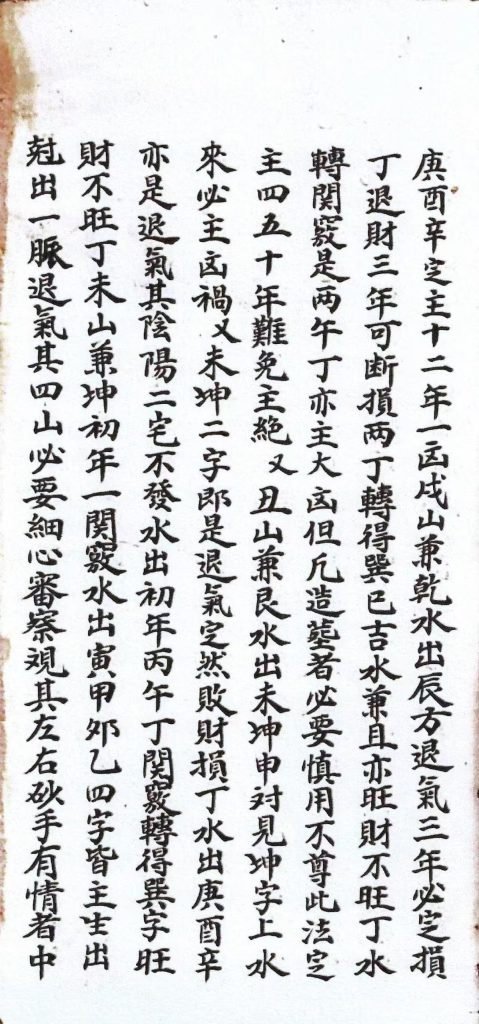 庚酉辛定主十二年一凶戌山兼乾水出辰方退氣三年必定損
丁退財三年可断損两丁轉得巽巳吉水兼且亦旺財不旺丁水
轉関竅是两午丁亦主大凶但凢造墓者必要慎用不尊此法定
主四五十年難免主絶又丑山兼艮水出未坤申对見坤字上水
來必主凶禍又未坤二字即是退氣定然敗財損丁水出庚酉辛
亦是退氣其陰陽二宅不發水出初年丙午丁関竅轉得巽字旺
財不旺丁未山兼坤初年一関竅水出寅甲夘乙四字皆主生出
尅出一脈退氣其四山必要細心審察視其左右砂手有情者中